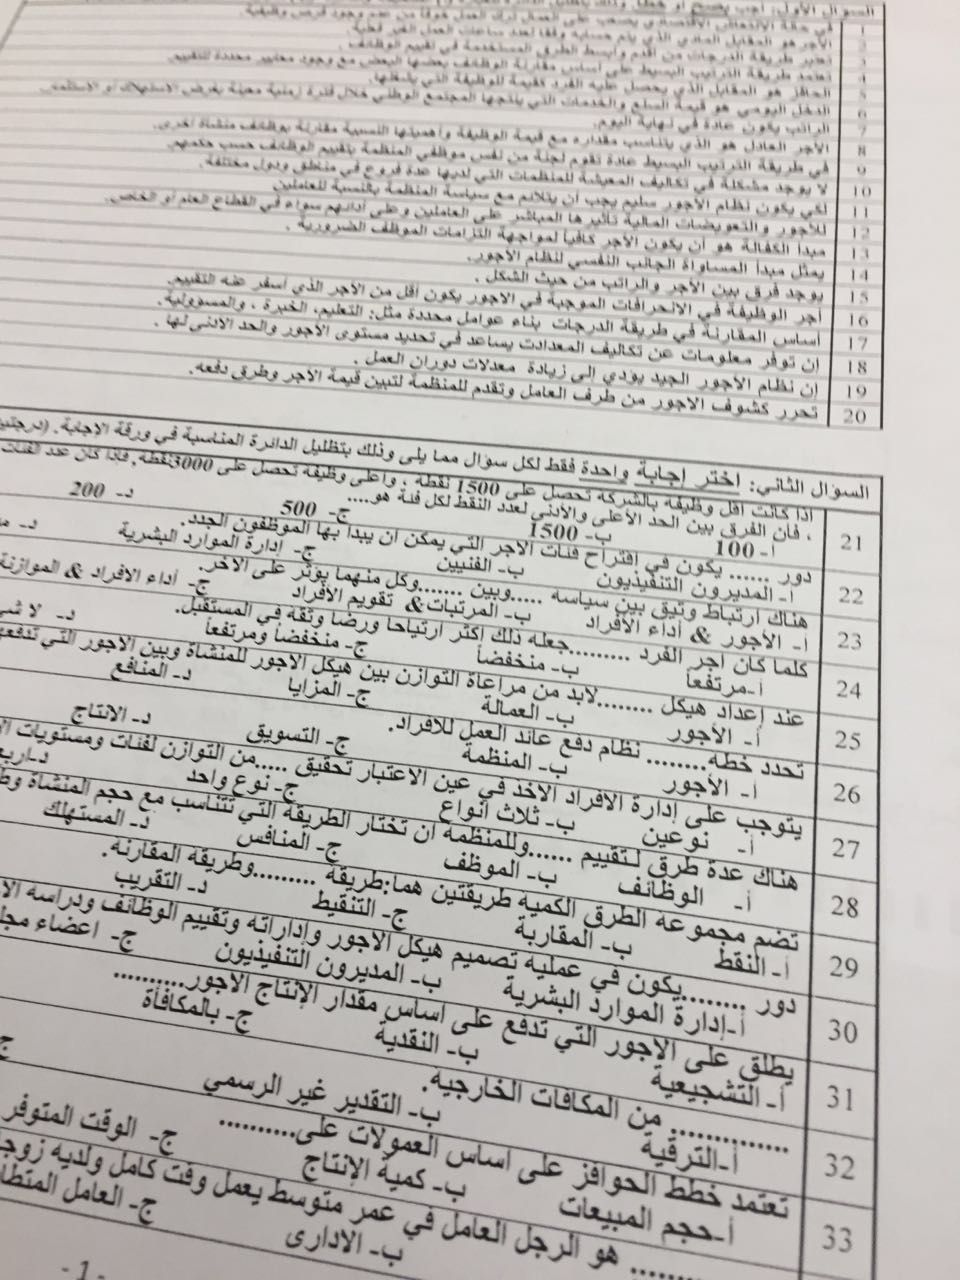 السؤال الأول: أجب بصح أو خطأ وذلك بتظليل الدائرة
1 في حالة الانتعاش الاقتصادي يصعب على العمال ترك العمل خوفاً من عدم وجود فرص وظيفية.
2 الأجر هو المقابل المادي الذي يتم حسابه وفقا لعدد ساعات العمل الغير فعلية.
3 تعتبر طريقة الدرجات من أقدم وأبسط الطرق المستخدمة في تقييم الوظائف.
4 تعتمد طريقة الترتيب البسيط على أساس مقارنة الوظائف بعضها البعض مع وجود معايير محددة للتقييم.
5 الحافز هو المقابل الذي يحصل عليه الفرد كقيمة للوظيفة التي يشغلها.
6 الدخل اليومي هو قيمة السلع والخدمات التي ينتجها المجتمع الوطني خلال فترة زمنية معينة بغرض الاستهلاك أو الاستثمار.
7 الراتب يكون عادة في نهاية اليوم.
8 الأجر العادل هو الذي يتناسب مقداره مع قيمة الوظيفة وأهميتها النسبية مقارنة بوظائف منشأة أخرى.
9 في طريقة الترتيب البسيط عادة تقوم لجنة من نفس موظفي المنظمة بتقييم الوظائف حسب حكمهم.
10 لا يوجد مشكلة في تكاليف المعيشة للمنظمات التي لديها عدة فروع في مناطق ودول مختلفة.
11 لكي يكون نظام الأجور سليم يجب أن يتلائم مع سياسة المنظمة بالنسبة للعاملين
12 للأجور والتعويضات المالية تأثيرها المباشر على العاملين وعلى أدائهم سواء في القطاع العام أو الخاص.
13 مبدأ الكفالة هو أن يكون الأجر كافياً لمواجهة التزامات الموظف الضرورية .
14 يمثل مبدأ المساواة الجانب النفسي لنظام الأجور.
15 يوجد فرق بين الأجر والراتب من حيث الشكل .
16 أجر الوظيفة في الانحرافات الموجبة في الاجور يكون أقل من الأجر الذي أسفر عنه التقييم.
17 أساس المقارنة في طريقة الدرجات بناء عوامل محددة مثل: التعليم، الخبرة ، والمسؤولية.
18 إن توفر معلومات عن تكاليف المعدات يساعد في تحديد مستوى الأجور والحد الأدنى لها .
19 إن نظام الأجور الجيد يؤدي إلى زيادة معدلات دوران العمل .
20 تحرر كشوف الأجور من طرف العامل وتقدم للمنظمة لتبين قيمة الأجر وطرق دفعه.
السؤال الثاني: إختر إجابة واحدة فقط لكل سؤال مما يلى وذلك بتظليل الدائرة المناسبة في ورقة الإجابة. (درجتين
21 اذا كانت أقل وظيفه بالشركة تحصل على 1500 نقطة ، واعلى وظيفه تحصل على 3000نقطه، فإذا كان عدد الفئات
، فأن الفرق بين الحد الأعلى والأدنى لعدد النقط لكل فئة هو....
أ- 100 ب- 1500 ج- 500 د- 200
22 دور ...... يكون في إقتراح فئات الأجر التي يمكن ان يبدأ بها الموظفون الجدد.
أ- المديرون التنفيذيون ب- الفنيين ج- إدارة الموارد البشرية د-
23 هناك ارتباط وثيق بين سياسه .....وبين .......وكل منهما يؤثر على الآخر.
أ- الأجور & أداء الأفراد ب- المرتبات& تقويم الأفراد ج- أداء الافراد & الموازنة
24 كلما كان أجر الفرد .........جعله ذلك أكثر ارتياحا ورضا وثقه في المستقبل.
أ-مرتفعاً ب- منخفضاً ج- منخفضاً ومرتفعاً د- لا شى
25 عند إعداد هيكل ........لابد من مراعاة التوازن بين هيكل الأجور للمنشاة وبين الأجور التي تدفعها
أ- الأجور ب- العمالة ج- المزايا د- المنافع
26 تحدد خطه......... نظام دفع عائد العمل للافراد.
أ- الأجور ب- المنظمة ج- التسويق د- الانتاج
27 يتوجب على إدارة الافراد الاخذ في عين الاعتبار تحقيق .....من التوازن لفئات ومستويات
أ- نوعين ب- ثلاث أنواع ج- نوع واحد د-
28 هناك عدة طرق لتقييم ......وللمنظمة ان تختار الطريقه التي تتناسب مع حجم المنشاة
أ- الوظائف ب- الموظف ج- المنافس د- المستهلك
29 تضم مجموعة الطرق الكمية طريقتين هما:طريقة .........وطريقه المقارنه.
أ- النقط ب- المقاربة ج- التنقيط د- التقريب
30 دور ........يكون في عمليه تصميم هيكل الاجور وإداراته وتقييم الوظائف ودراسه
أ-إدارة الموارد البشرية ب- المديرون التنفيذيون ج- اعضاء
31 يطلق على الاجور التي تدفع على اساس مقدار الإنتاج الاجور..........
أ- التشجيعية ب- النقدية ج- بالمكافأة
32 .............. من المكافات الخارجيه.
أ-الترقية ب- التقدير غير الرسمي ج
33 تعتمد خطط الحوافز على اساس العمولات على..........
أ-حجم المبيعات ب- كمية الإنتاج ج- الوقت المتوفر
......... هو الرجل العامل في عمر متوسط يعمل وقت كامل ولديه
ب- الاداری ج- العامل
- 1 -